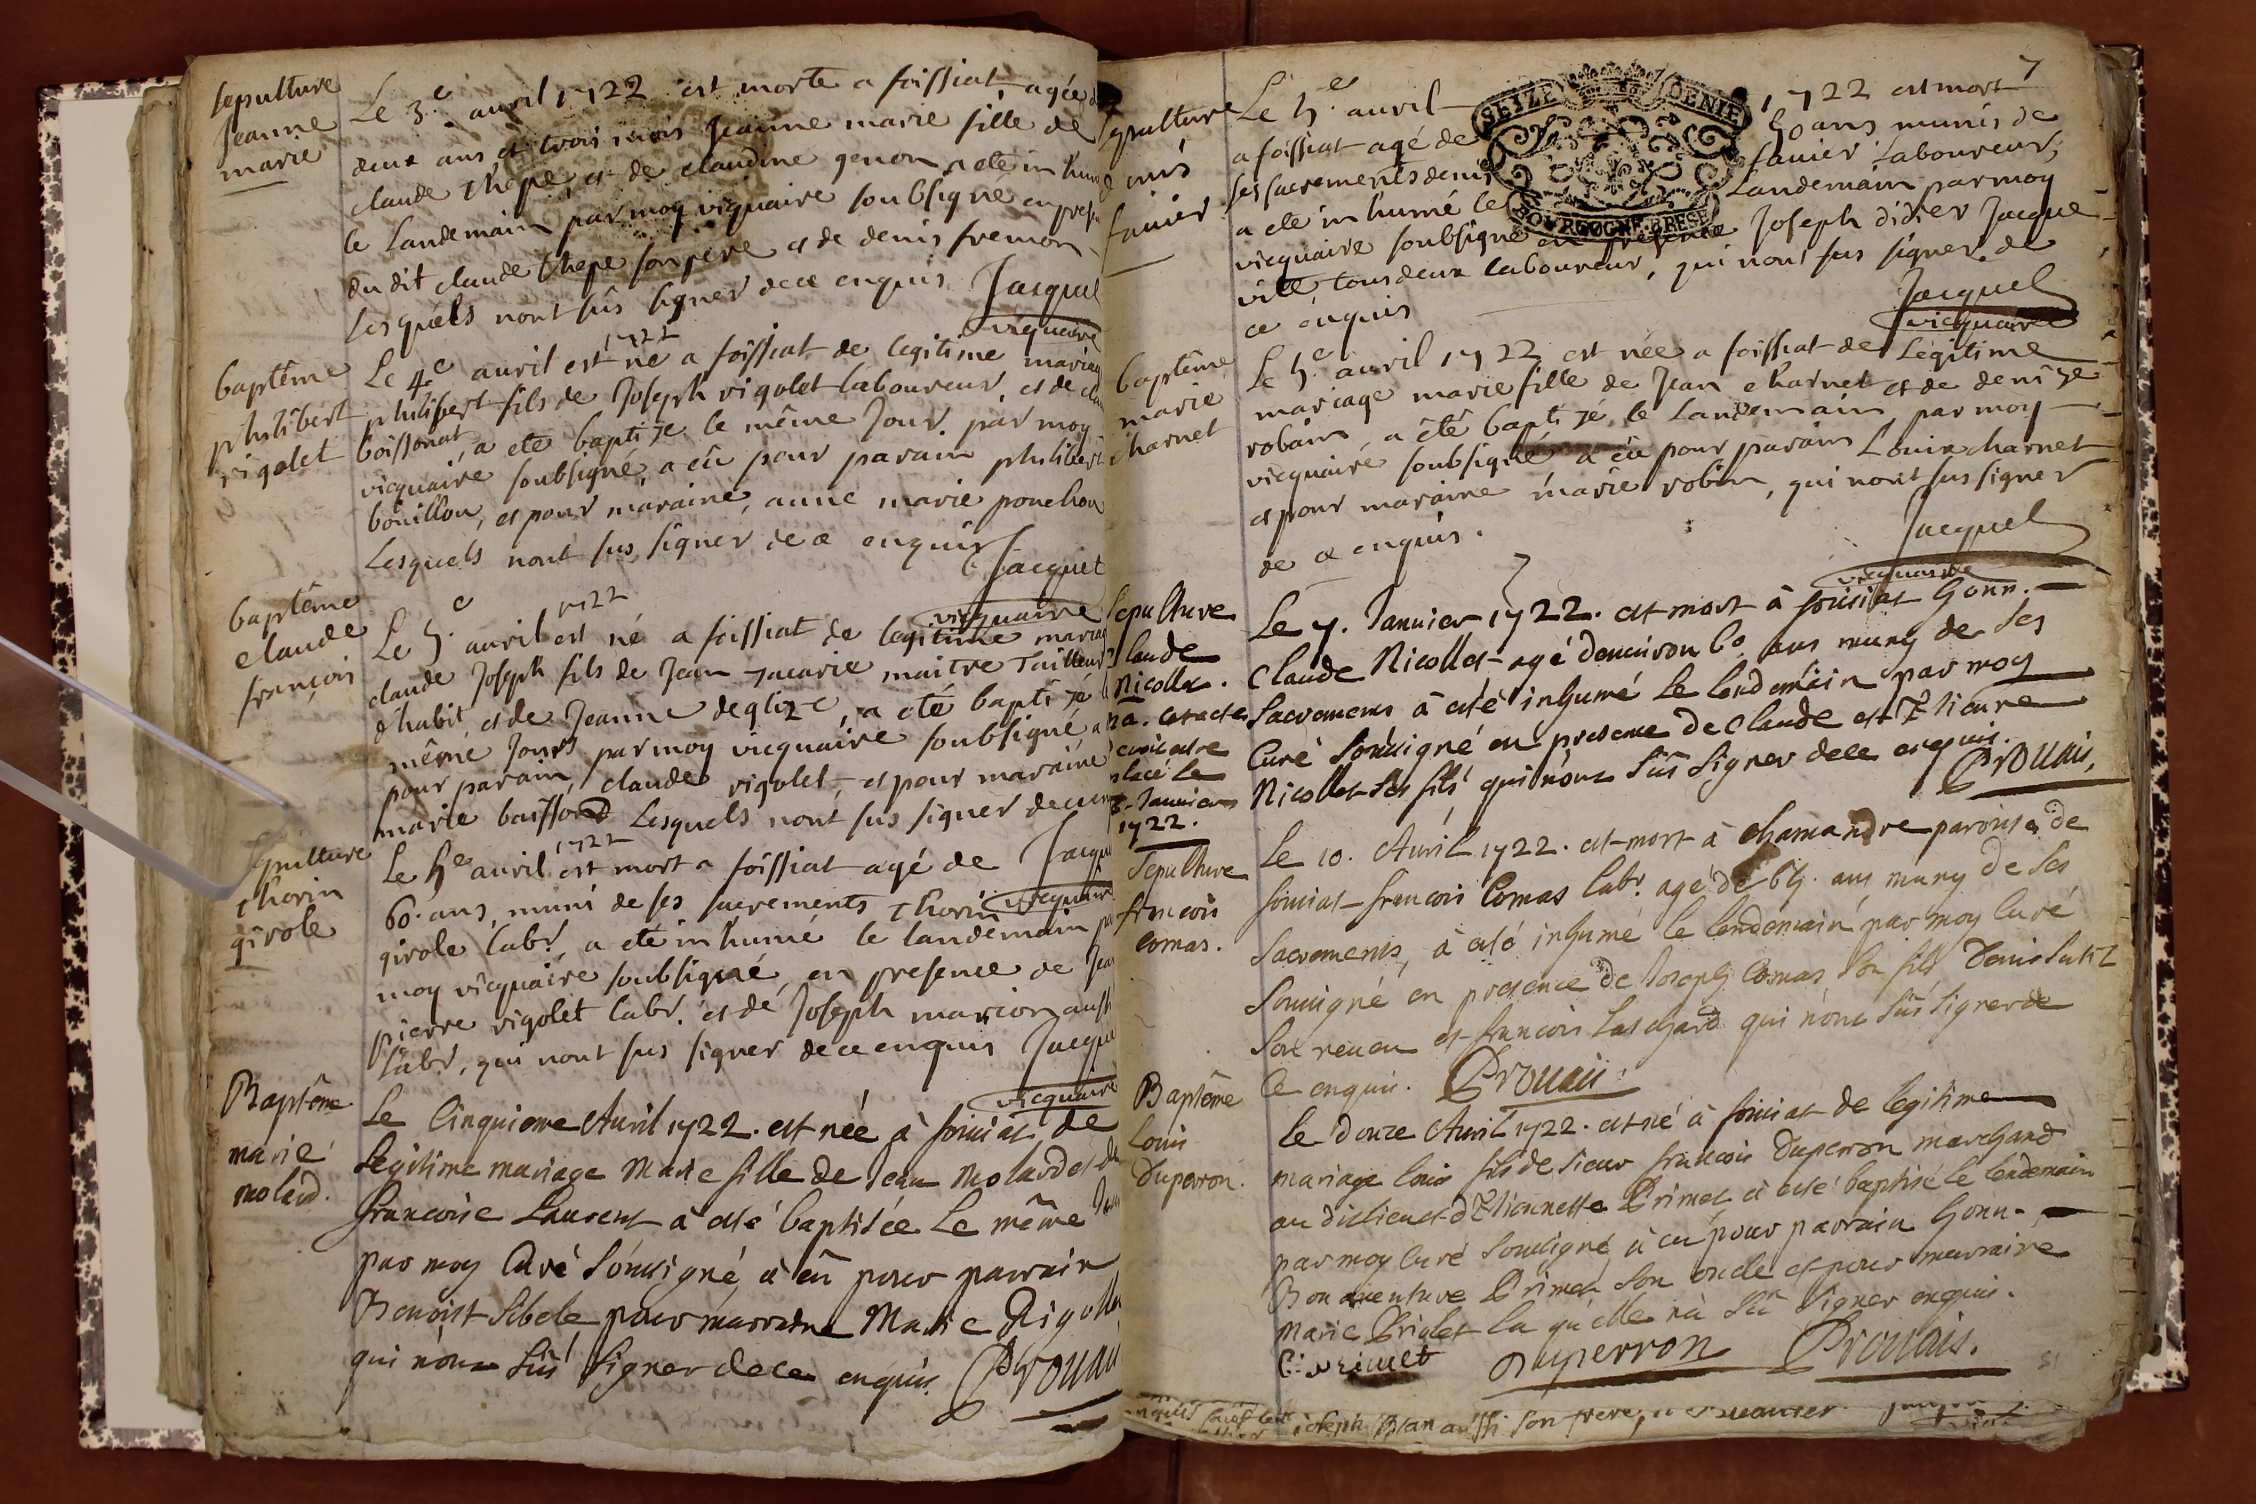 sepulture
Jeanne
marie
Le 3.e auvril 1722 est morte a foissiat, agée de
deux ans et trois mois Jeanne marie fille de
claude thepe, et de claudine genon, a ete in hume
le Landemain par moy viquaire soubsigne en prese
du dit claude thepe son pere et de denis fremon
Lesquels nont sus signer de ce enquis Jacquet
vicquaire
baptême
philibert
rigolet
1722
Le 4.e auvril est né a foissiat de legitime mariag
philibert fils de Joseph rigolet laboureur, et de clau
boissonat, a ete baptize le même Jour par moy
vicquaire soubsigné, a eü pour parain philibert
bouillon, et pour maraine, anne marie pouchon
Lesquels nont sus signer de ce enquis Jacquet
vicquaire
baptême
claude
françois
1722
Le 5.e auvril est né a foissiat de legitime mariag
claude Joseph fils de Jean zacarie maitre Tailleur
d'habit, et de Jeanne deglize, a eté baptizé l
même Jours par moy vicquaire soubsigné a
pour parain, claude rigolet, et pour maraine
marie boisson Lesquels nont sus signer de ce en
Jacque
vicquaire
sepulture
thorin
girole
1722
Le 5.e auvril est mort a foissiat agé de
60. ans, muni de ses sacrements thorin
girole labr. a ete in humé le landemain pa
moy vicquaire soubsigné, en presence de Jea
pierre rigolet labr. et de Joseph marion aussi
labr, qui nont sus signer de ce enquis Jacque
vicquaire
Baptême
marie
molard.
Le Cinquieme Auril 1722. est née à foissiat de
Legitime mariage Marie fille de Jean Molard et de
francoise Laurent à eté baptisée Le même Jou
par moy Curé Soussigné, à eü pour parrain
Benoist Sibele, pour marraine Marie Rigolle
qui nont Sus signer de ce enquis. Prouais
7
sepulture
denis
fanier
Le 5.e auvril 1722 est mort
a foissiat agé de 50 ans munis de
ses sacrements denis fanier laboureur,
a ete inhumé le Landemain par moy
vicquaire soubsigne en presence Joseph didier Jacque
vite, tous deux laboureur, qui nont sus signer de
ce enquis
Jacquet
vicquaire
SEIZE DENIE
BOURGOGNE BRESE
baptême
marie
charnet
Le 5.e auvril 1722 est née a foissiat de Legitime
mariage marie fille de Jean charnet et de denize
robain, a été baptizé, le Landemain, par moy
vicquaire soubsigné a eü pour parain Louix charnet
et pour maraine marie robin, qui nont sus signer
de ce enquis.
Jacquet
vicquaire
Sepulture
Claude
Nicollet.
na. cet acte
doit estre
placé Le
8. Januier
1722.
Le 7. Januier 1722. est mort à foissiat honn.
Claude Nicollet agé denuiron 60 ans muny de Ses
Sacremens à eté inhumé Le lendemain par moy
Curé Soussigné en presence de Claude et Etienne
Nicollet Ses fils qui nont Sus Signer de ce enquis.
Prouais.
Sepulture
francois
comas.
Le 10. Auril 1722. est mort à Chamandre paroisse de
foissiat francois Comas labr. agé de 65. ans muny de Ses
Sacremens, à eté inhumé le lendemain par moy Curé
Soussigné en presence de Joseph Comas Son fils Denis
Son neueu et francois qui nont Sus Signer de
Ce enquis. Prouais
Baptême
Louis
Duperron.
Le douze Auril 1722. est né à foissiat de legitime
mariage louis fils de Sieur francois Duperron marchand
au dit lieu et d'Etiennette Primet à eté baptisé le lendemain
par moy Curé Soussigné, à eu pour parrain honn.
Bonauenture Primet Son oncle et pour marraine
Marie Priolet la qu'elle na Sus Signer enquis.
Primet Duperron Prouais.
Joseph Blan aussi son frere,